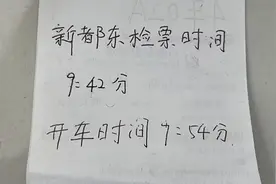 新都东检票时间
9:42分
开车时间 9:54分